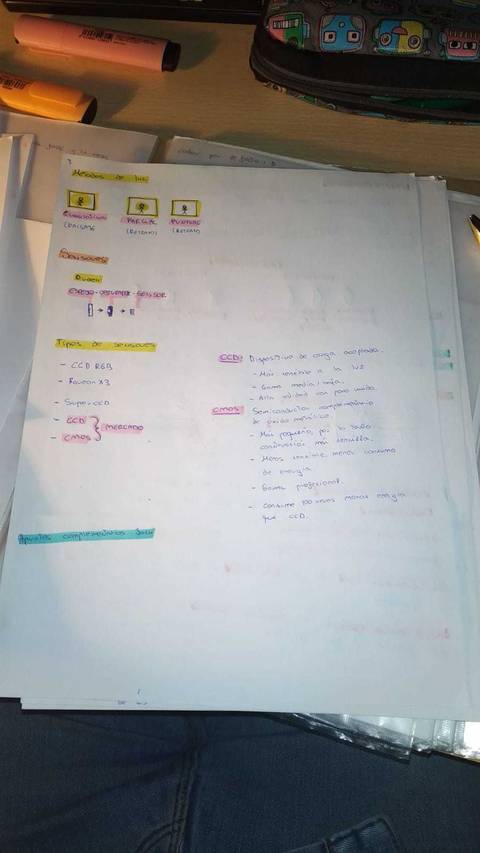 de luz
PARCIAL
PUNTUAL
(RETRATO)
(RETRATO)
Sensores
Orden
SENSOR
Tipos de sensores
- CCD RGB
- Foveon X3
- Super CCD
- CCD
- CMOS
MERCADO
CCD: Dispositivo de carga acoplada.
- Más sensible a la luz
- Gama media / baja.
- Alta calidad con poco ruido
CMOS: Semiconductor complementario
de óxido metálico.
- Más pequeño, por lo tanto
construcción más sencilla.
- Menos sensible, menos consumo
de energía
- Gama profesional.
- Consume 100 veces menos energía
que CCD.
Apuntes complementarios